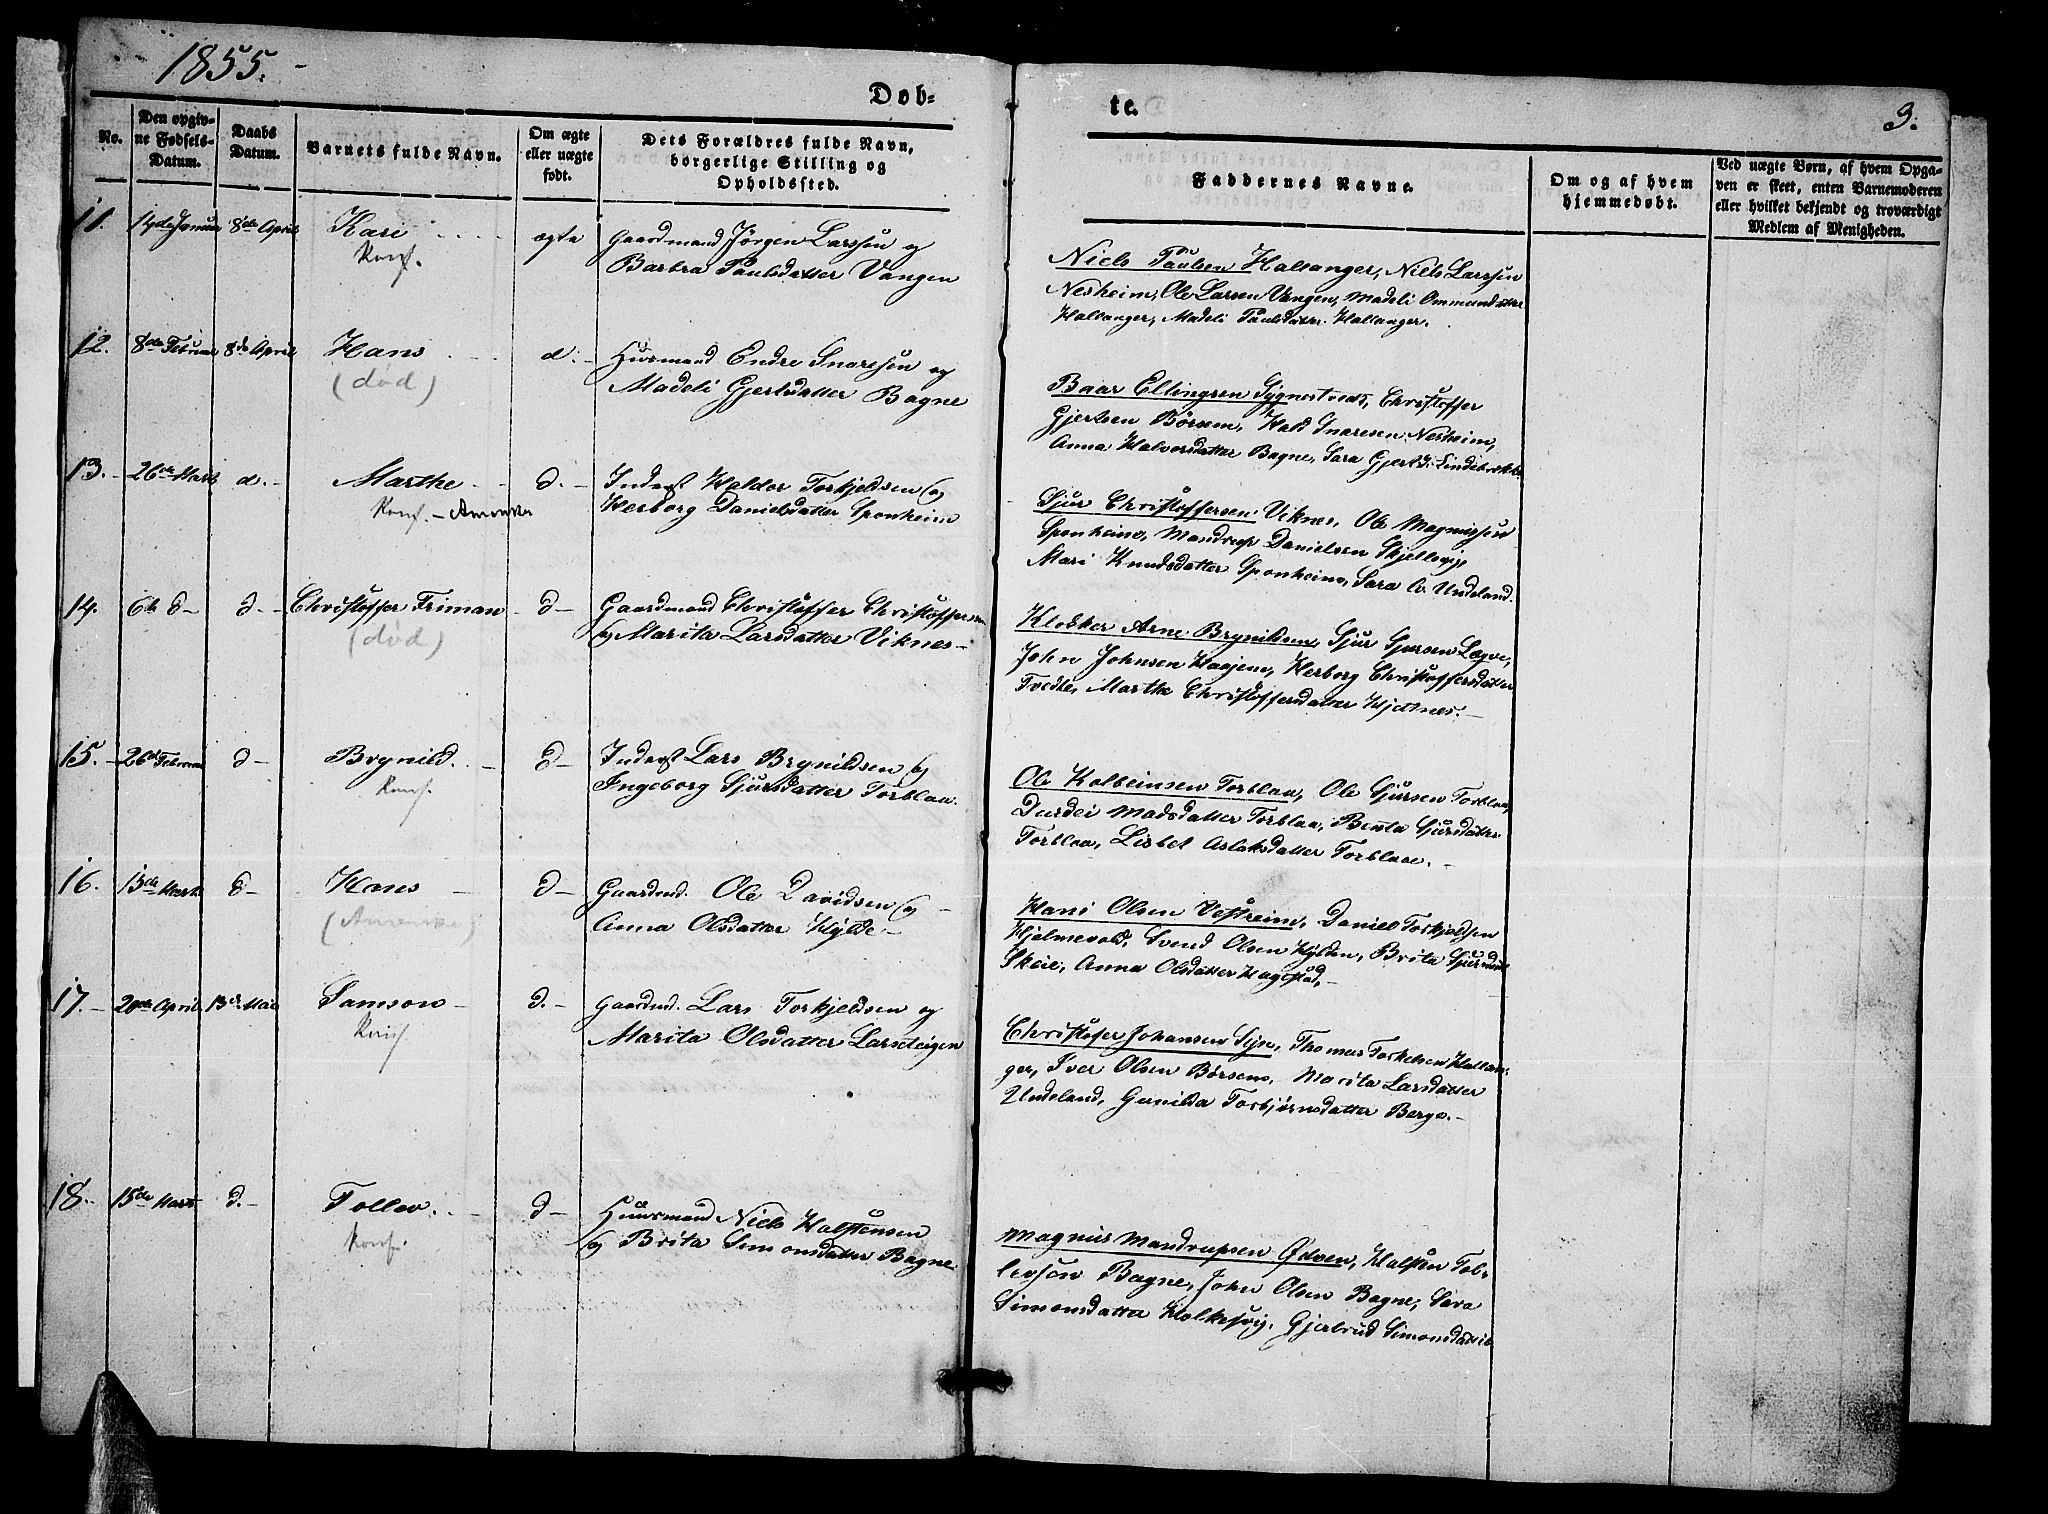 1855.
Døb-
te.
3.
No.
Den opgiv-
ne Fødsels-
Datum.
Daabs
Datum.
Barnets fulde Navn.
Om ægte
eller uægte
født.
Dets Forældres fulde Navn,
borgerlige Stilling og
Opholdssted.
Faddernes Navne.
Om og af hvem
hjemmedøbt.
Ved uægte Børn, af hvem Opga-
ven er skeet, enten Barnemoderen
eller hvilket bekjendt og troværdigt
Medlem af Menigheden.
11. 14de Januar 8de April Kari ægte Gaardmand Jørgen Larssen og
Konf. Barbra Paulsdatter Vangen
Niels Paulsen Hallanger, Niels Larssen
Nesheim, Ole Larsen Vangen, Madeli Ommundsdtter
Hallanger, Madeli Paulsdatter Hallanger.
12. 8de Februar 8de April Hans d. Husmand Endre Snaresen og
(død) Madeli Gjertsdatter Bagne
Baar Ellingsen Sygnestveit, Christoffer
Gjertsen Børsem, Hald Snaresen Nesheim,
Anna Halvorsdatter Bagne, Sara Gjertsd.
13. 26de Marts d. Marthe d. Inderst Haldor Torkjeldsen og
Konf. - Amerika Herborg Danielsdatter Sponheim
Sjur Christoffersen Viknes, Ole Magnussen
Sponheim, Mandrup Danielsen Skjellevig,
Mari Knudsdatter Sponheim, Sara Undeland.
14. 6te d- d- Christoffer Friman d- Gaardmand Christoffer Christoffersen
(død) og Marita Larsdatter Viknes-
Klokker Arne Brynildsen, Sjur Sjursen Lægve,
John Johnsen Haajene, Herborg Christoffersdatter
Tvedte, Martha Christoffersdatter Hjeltnes.-
15. 26de Februar d- Brynild. d- Inderst Lars Brynildsen og
Konf. Ingeborg Sjursdatter Torblaa.
Ole Kolbeinsen Torblaa, Ole Sjursen Torblaa,
Durdei Madsdatter Torblaa, Benta Sjursdatter
Torblaa, Lisbet Aslaksdatter Torblaa.-
16. 13de Marts d- Hans d- Gaardmd. Ole Davidsen og
(Amerika) Anna Olsdatter Hylde-
Hans Olsen Vestreim, Daniel Torkjeldsen
Hjelmevold, Svend Olsen Hylden, Brita Sjursdatt
Skeie, Anna Olsdatter Hagestad,-
17.- April 13de Mai Samson- d.- Gaardmd. Lars Torkjeldsen og
Konf. Marita Olsdatter Larsteigen
Christofer Johansen Seje, Thomas Torkelsen Hallan-
ger, Iver Olsen Børsem, Marita Larsdatter
Undeland, Gunilda Torbjørnsdatter Berge.-
18. 15de Marts d.- Tollev. d- Huusmand Niels Halstensen
Konf. og Brita Simonsdatter Bagne.
Magnus Mandrupsen Ødven, Halsten Tol-
levsen Bagne, John Olsen Bagne, Sara
Simonsdatter Holkesvig. Gjertrud Simonsdatter